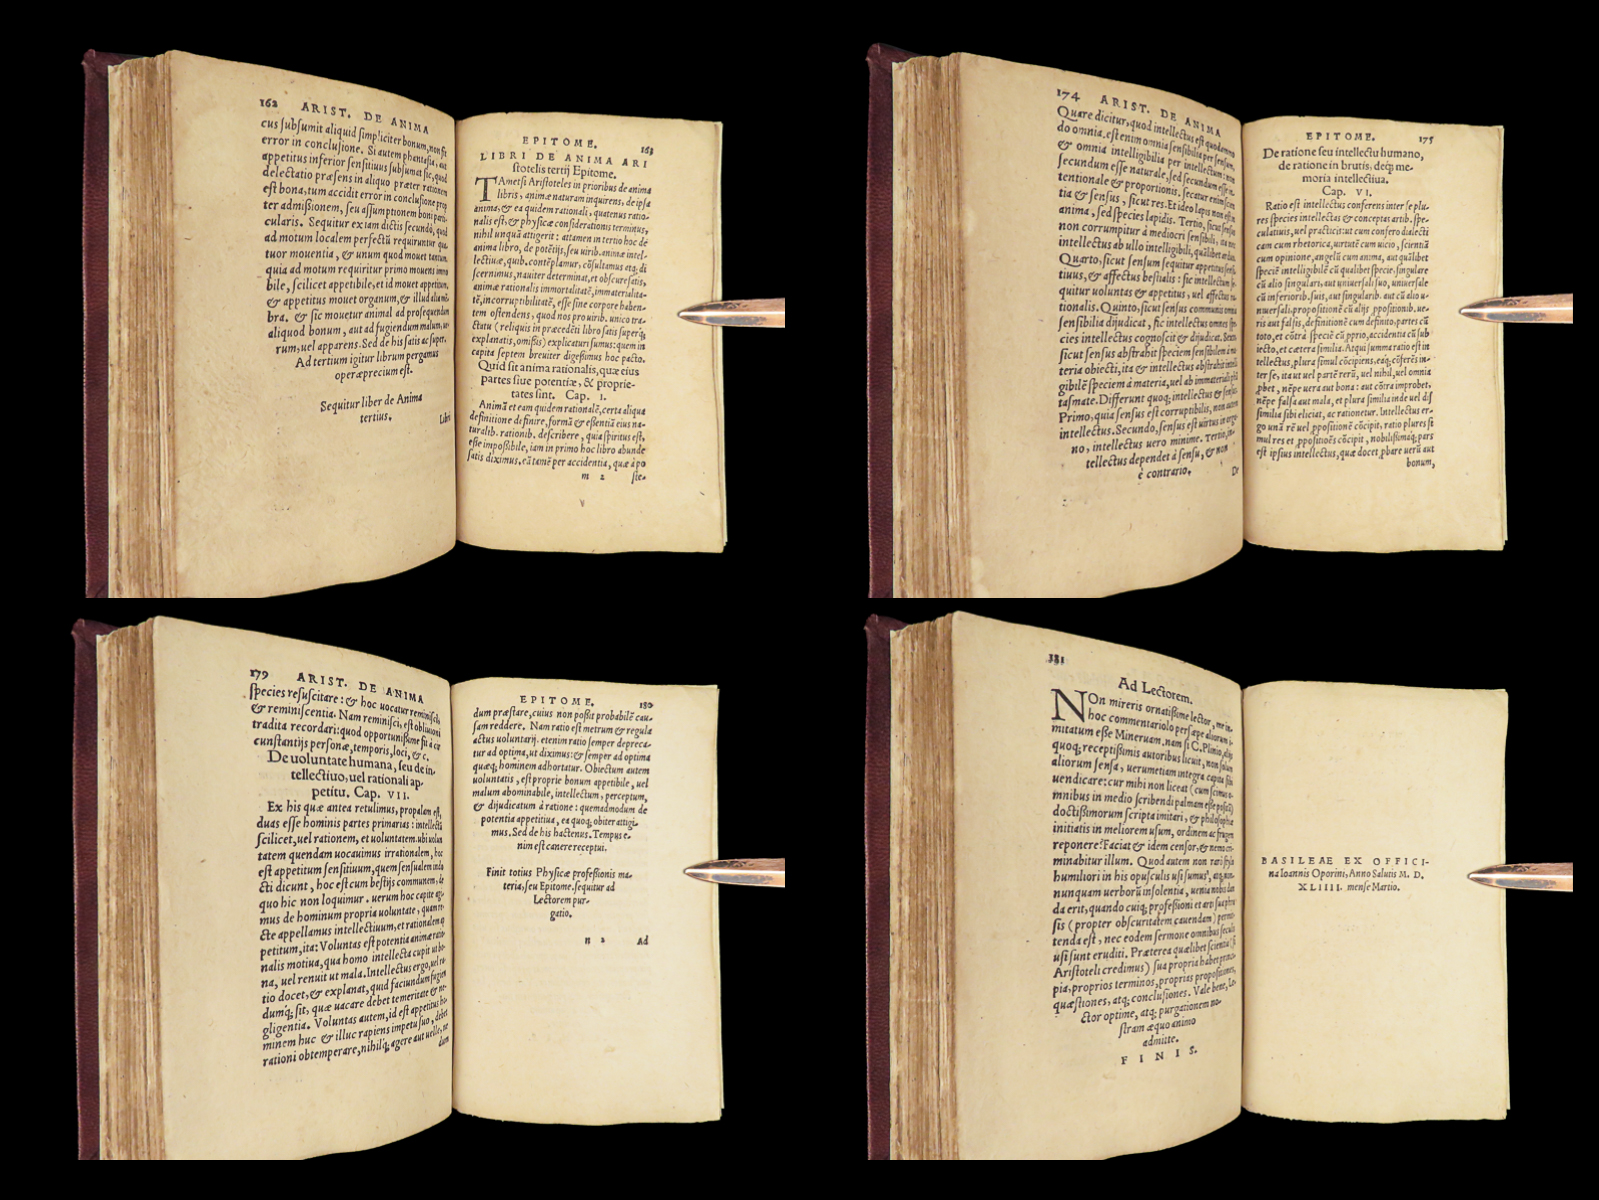 162 ARIST. DE ANIMA
cus subsumit aliquid simpliciter bonum, non fit
error in conclusione. Si autem phantasia, aut
appetitus inferior sensitiuus subsumat sic, quod
delectatio præsens in aliquo præter rationem
est bona, tum accidit error in conclusione prop
ter admißionem, seu assumptionem boni parti-
cularis. Sequitur ex iam dictis secundò, quod
ad motum localem perfectũ requiruntur qua-
tuor mouentia, & unum quod mouet tantum
quia ad motum requiritur primo mouens immo
bile, scilicet appetibile, et id mouet appetitum,
& appetitus mouet organum, & illud alia mẽ-
bra. & sic mouetur animal ad prosequendum
aliquod bonum, aut ad fugiendum malum, ue-
rum, uel apparens. Sed de his satis ac super.
Ad tertium igitur librum pergamus
operæprecium est.
Sequitur liber de Anima
tertius.
Libri
EPITOME. 163
LIBRI DE ANIMA ARI
stotelis tertij Epitome.
TAmetsi Aristoteles in prioribus de anima
libris, animæ naturam inquirens, de ipsa
anima, & ea quidem rationali, quatenus ratio-
nalis est, & physicæ considerationis terminus,
nihil unquã attigerit: attamen in tertio hoc de
anima libro, de potẽtijs, seu uirib. animæ intel-
lectiuæ, quib. contẽplamur, cõsultamus atq; di
scernimus, nauiter determinat, et obscure satis,
animæ rationalis immortalitatẽ, immaterialita-
tẽ, incorruptibilitatẽ, esse sine corpore habens-
tem ostendens, quod nos pro uirib. unico tra-
ctatu (reliquis in præcedẽti libro satis superq;
explanatis, omißis) explicaturi sumus: quem in
capita septem breuiter digeßimus hoc pacto.
Quid sit anima rationalis, quæ eius
partes siue potentiæ, & proprie-
tates sint. Cap. I.
Animã et eam quidem rationalẽ, certa aliqua
definitione definire, formã & eßentiã eius na-
turalib. rationib. describere, quia spiritus est,
esse impoßibile, iam in primo hoc libro abunde
satis diximus. eã tamẽ per accidentia, quæ à po
m 2 ste-
174 ARIST. DE ANIMA
Quare dicitur, quod intellectus est quodammo
do omnia. est enim omnia sensibilia per sensum,
& omnia intelligibilia per intellectum: non
secundum esse naturale, sed secundum esse in-
tentionale & proportionis. secatur enim scien
tia & sensus, sicut res. Et ideo lapis non est in
anima, sed species lapidis. Tertio, sicut sensus
non corrumpitur à mediocri sensibili, ita nec
intellectus ab ullo intelligibili, qualibet actum.
Quarto, sicut sensum sequitur appetitus sensi-
tiuus, & affectus bestialis: sic intellectum se-
quitur uoluntas & appetitus, uel affectus ra-
tionalis. Quinto, sicut sensus communis omnia
sensibilia dijudicat, sic intellectus omnes spe-
cies intellectus cognoscit & dijudicat. Sexto
sicut sensus abstrahit speciem sensibilem à ma
teria obiecti, ita & intellectus abstrahit intelli
gibilẽ speciem à materia, uel ab immateriali phã
tasmate. Differunt quoq; intellectus & sensus
Primo, quia sensus est corruptibilis, non autem
intellectus. Secundo, sensus est uirtus in orga-
no, intellectus uero minime. Tertio, in-
tellectus dependet à sensu, & non
è contrario.
De
EPITOME. 175
De ratione seu intellectu humano,
de ratione in brutis, deq; me-
moria intellectiua.
Cap. VI.
Ratio est intellectus conferens inter se plu-
res species intellectas & conceptas artib. spe-
culatiuis, uel practicis: ut cum confero dialecti
cam cum rhetorica, uirtutẽ cum uicio, scientiã
cum opinione, angelũ cum anima, aut quãlibet
speciẽ intelligibilẽ cũ qualibet specie, singulare
cũ alio singulari, aut uniuersali suo, uniuersale
cũ inferiorib. suis, aut singularib. aut cũ alio u-
niuersali, propositionẽ cũ alijs ppositionib. ue-
ris aut falsis, definitionẽ cum definito, partes cũ
toto, et cõtrà speciẽ cũ pprio, accidentia cũ sub
iecto, et cætera similia. Atqui summa ratio est in
tellectus, plura simul cõcipiens, eaq; cõferẽs in-
ter se, ita ut uel pariẽ rerũ, uel nihil, uel omnia
pbet, nẽpe uera aut bona: aut cõtra improbet,
nẽpe falsa aut mala, et plura similia inde uel dis
similia sibi eliciat, ac ratiocinetur. Intellectus er-
go unã rẽ uel ppositionẽ cõcipit, ratio plures si
mul res et ppositiões cõcipit, nobilißimaq; pars
est ipsius intellectus, quæ docet, pbare uerũ aut
bonum,
179 ARIST. DE ANIMA
species resuscitare: & hoc uocatur reminisci,
& reminiscentia. Nam reminisci, est obliuioni
tradita recordari: quod opportunißime fit à cir
cunstantijs personæ, temporis, loci, &c.
De uoluntate humana, seu de in-
tellectiuo, uel rationali ap-
petitu. Cap. VII.
Ex his quæ antea retulimus, propalam est,
duas esse hominis partes primarias: intellectũ
scilicet, uel rationem, et uoluntatem. ubi uolun
tatem quendam uocauimus irrationalem, hoc
est appetitum sensitiuum, quem sensualem indo
cti dicunt, hoc est cum bestijs communem, de
quo hic non loquimur. uerum hoc capite age-
mus de hominum propria uoluntate, quam re-
cte appellamus intellectiuum, et rationalem ap
petitum, ita: Voluntas est potentia animæ ratio-
nalis motiua, qua homo intellecta cupit ut bo-
na, uel renuit ut mala. Intellectus ergo, uel ra-
tio docet, & explanat, quid faciundum fugien
dumq; sit, quæ uacare debet temeritate & ne-
gligentia. Voluntas autem, id est appetitus ho-
minem huc & illuc rapiens impetu suo, debet
rationi obtemperare, nihilq; agere aut uelle, ne
dum
EPITOME. 180
dum præstare, cuius non poßit probabilẽ cau-
sam reddere. Nam ratio est metrum & regula
actus uoluntarij. etenim ratio semper depreca-
tur ad optima, ut diximus: & semper ad optima
quæq; hominem adhortatur. Obiectum autem
uoluntatis, est proprie bonum appetibile, uel
malum abominabile, intellectum, perceptum,
& dijudicatum à ratione: quemadmodum de
potentia appetitiua, ea quoq; obiter attigi-
mus. Sed de his hactenus. Tempus e-
nim est canere receptui.
Finit totius Physicæ profeßionis ma-
teria, seu Epitome. sequitur ad
Lectorem pur-
gatio.
n 2 Ad
181
Ad Lectorem.
NOn mireris ornatißime lector, me in
hoc commentariolo persæpe aliorum i-
mitatum eße Mineruam. nam si C. Plinio, alijs
quoq; receptißimis autoribus licuit, non solum
aliorum sensa, uerumetiam integra capita sibi
uendicare: cur mihi non liceat (cum scimus o-
mnibus in medio scribendi palmam esse positã)
doctißimorum scripta imitari, & philosophiæ
initiatis in meliorem usum, ordinem ac frugem
reponere? Faciat & idem censor, & nemo cri-
minabitur illum. Quod autem non rari stylo
humiliori in his opusculis usi sumus, atq; non
nunquam uerborũ insolentia, uenia nobis dan
da erit, quando cuiq; profeßioni et arti sua phra
sis (propter obscuritatem cauendam) permit-
tenda est, nec eodem sermone omnibus seculis
usi sunt eruditi. Præterea quælibet scientia (si
Aristoteli credimus) sua propria habet princi-
pia, proprios terminos, proprias propositiones,
quæstiones, atq; conclusiones. Vale bene, Le-
ctor optime, atq; purgationem no-
stram æquo animo
admitte.
FINIS.
BASILEAE EX OFFICI-
na Ioannis Oporini, Anno Salutis M. D.
XLIIII. mense Martio.